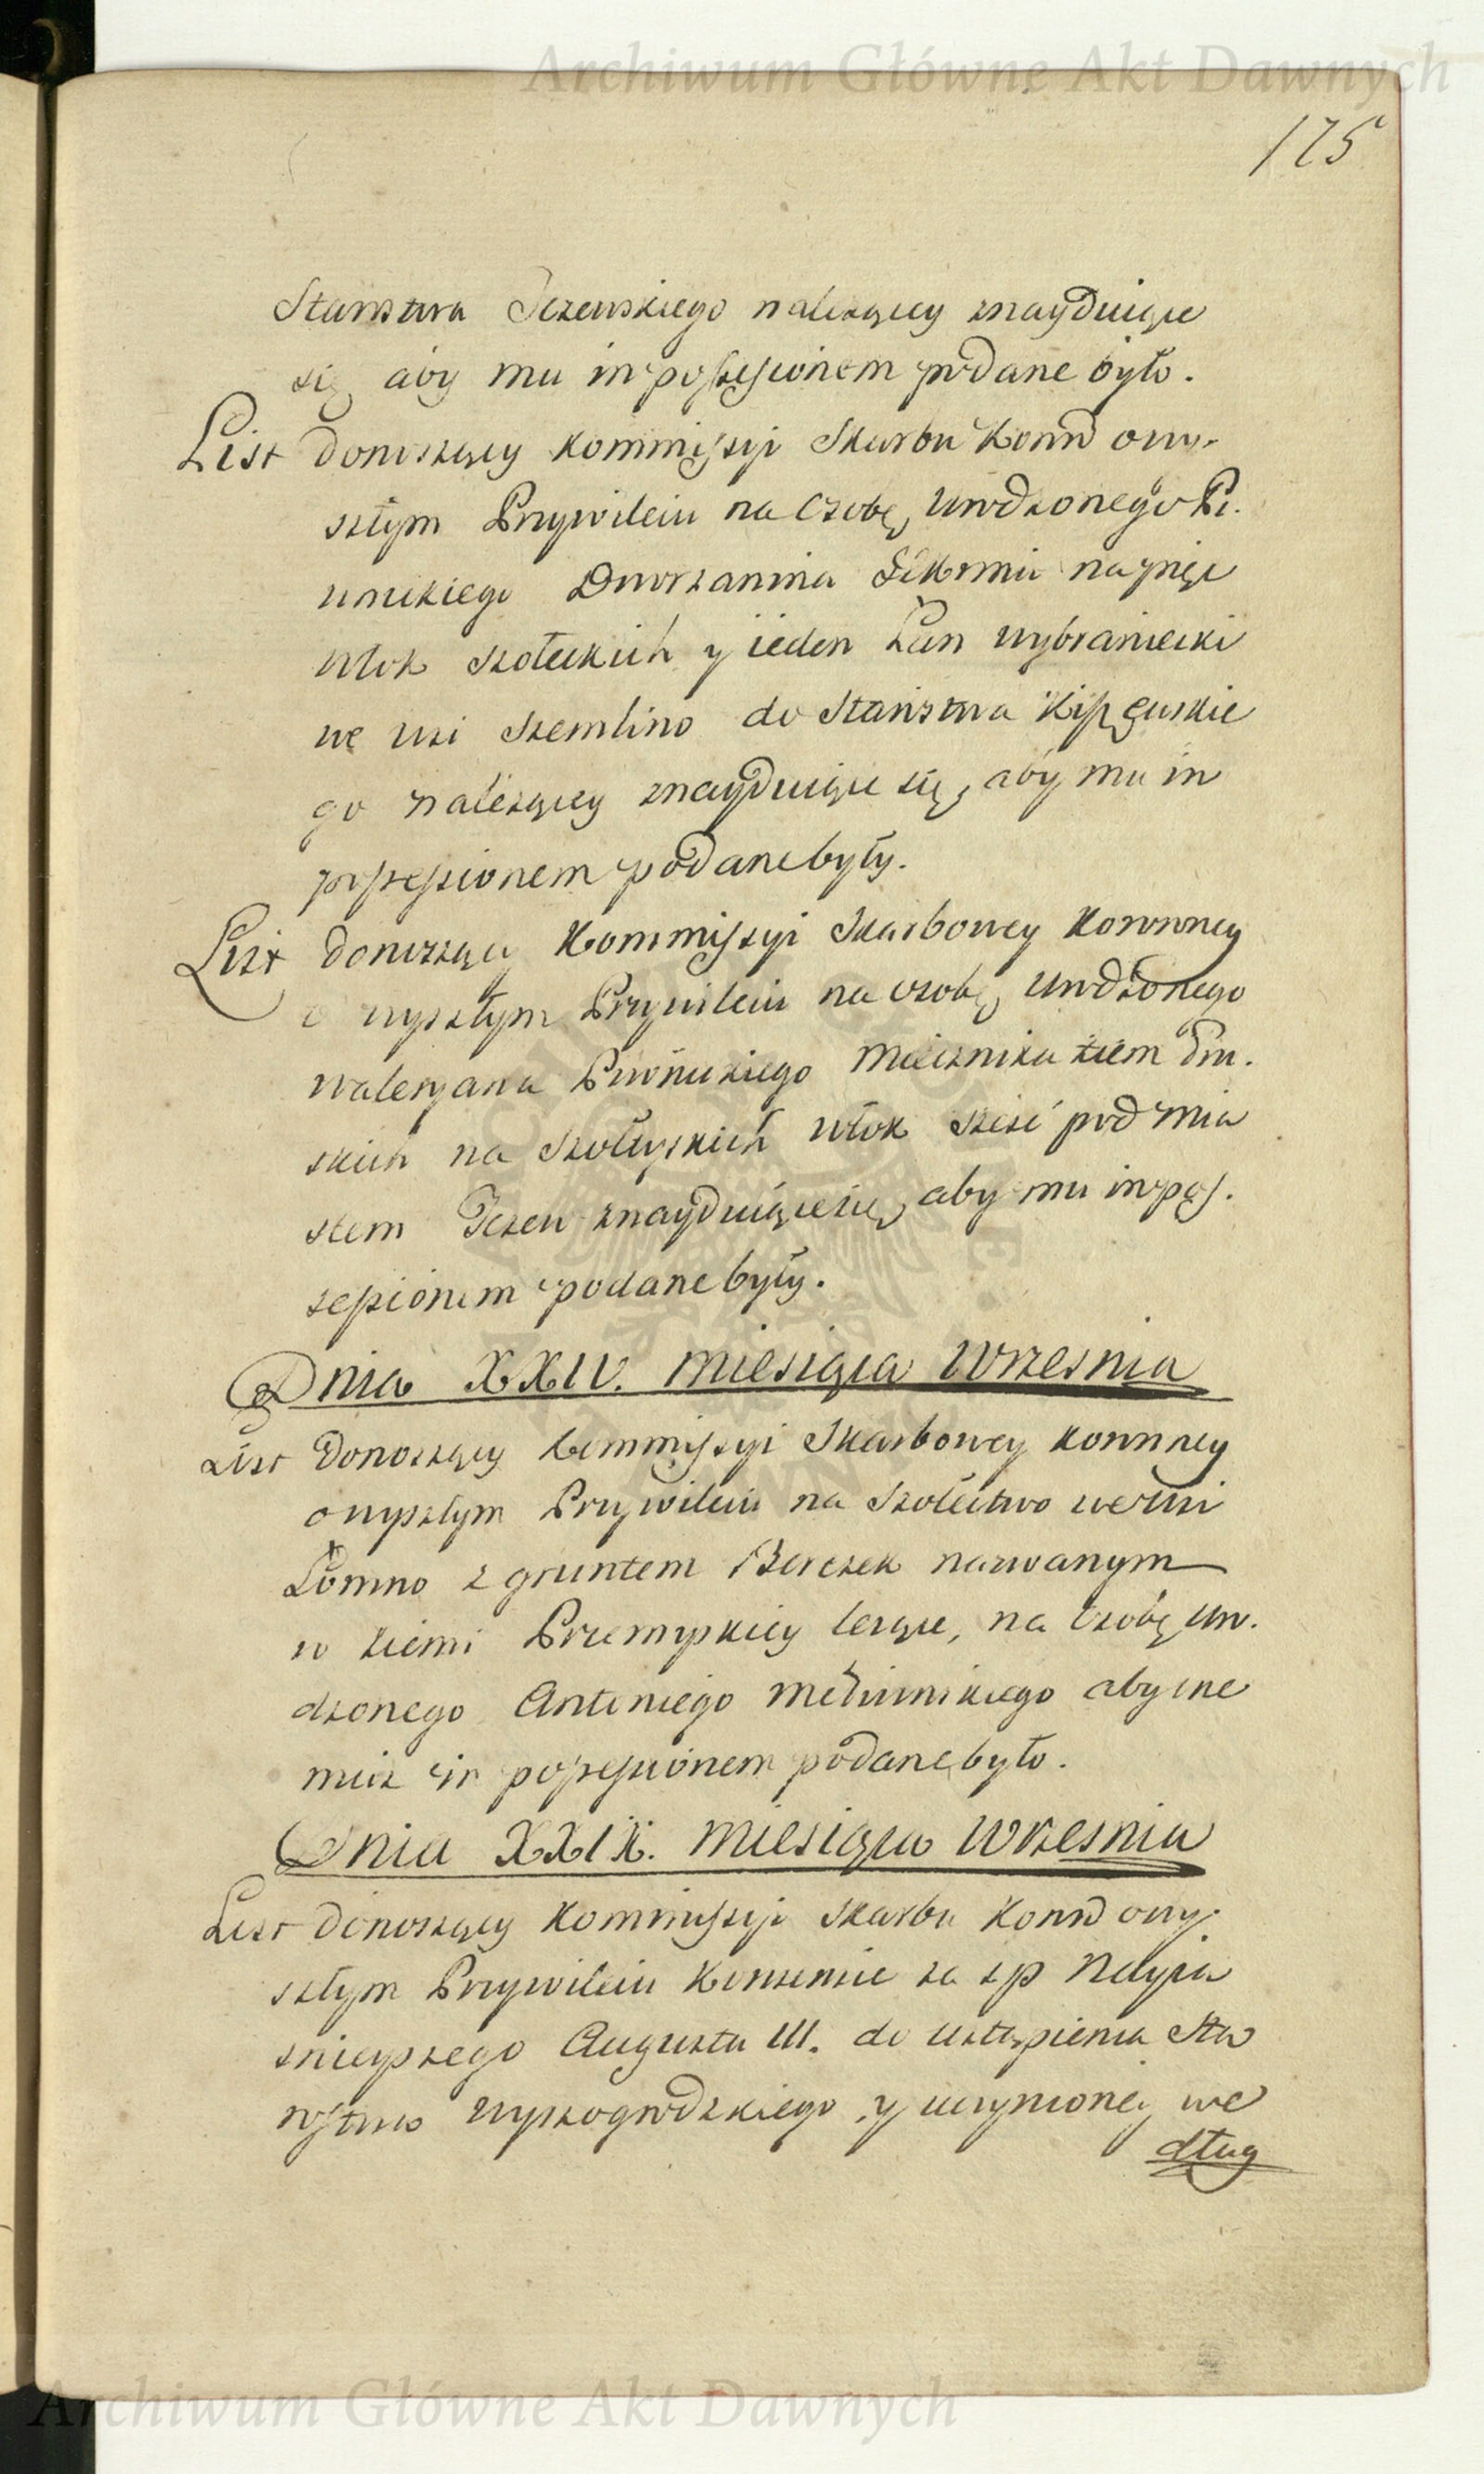 Archiwum Główne Akt Dawnych
175
Starostwa Tczewskiego należący znayduiące
się aby mu in possessionem podane było.
List donoszący Kommissyi Skarbu Koron̄ o wy-
szłym Przywileiu na Osobę Urodzonego Pi-
wnickiego Dworzanina na pięć
włok szołeckich y ieden Łan wybraniecki
we wsi Szemlino do Starostwa Kiszewskie
go należący znayduiące się, aby mu in
possessionem podane były.
List donoszący Kommissyi Skarbowey Koronney
o wyszłym Przywileiu na osobę Urodzonego
Waleryana Piwnickiego Miecznika Ziem Pru-
skich na Szołeyskich włok sześć pod Mia
stem Tczew znayduiące się, aby mu in pos-
sessionem podane były.
Dnia XXIV. Miesiąca Wrzesnia
List Donoszący Kommissyi Skarbowey Koronney
o wyszłym Przywileiu na Szołectwo we Wsi
Łomno z gruntem Berezek nazwanym
w Ziemi Przemyskiey leżące, na Osobę Uro-
dzonego Antoniego aby one
muż in possessionem podane było.
Dnia XXIX. Miesiąca Wrzesnia
List donoszący Kommissyi Skarbu Koron̄ o wy-
szłym Przywileiu Konsensie za ś p Nayia
śnieyszego Augusta III. do ustąpienia Sta
rostwa Wyszogrodzkiego y uczynioney we
dług
Archiwum Główne Akt Dawnych